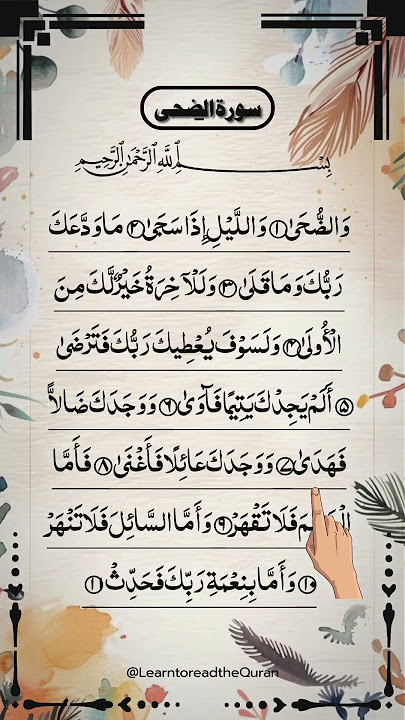 سورة الضحى
بِسْمِ اللَّهِ الرَّحْمَٰنِ الرَّحِيمِ
وَالضُّحَىٰ ۝١ وَاللَّيْلِ إِذَا سَجَىٰ ۝٢ مَا وَدَّعَكَ
رَبُّكَ وَمَا قَلَىٰ ۝٣ وَلَلْآخِرَةُ خَيْرٌ لَّكَ مِنَ
الْأُولَىٰ ۝٤ وَلَسَوْفَ يُعْطِيكَ رَبُّكَ فَتَرْضَىٰ
۝٥ أَلَمْ يَجِدْكَ يَتِيمًا فَآوَىٰ ۝٦ وَوَجَدَكَ ضَالًّا
فَهَدَىٰ ۝٧ وَوَجَدَكَ عَائِلًا فَأَغْنَىٰ ۝٨ فَأَمَّا
فَلَا تَقْهَرْ ۝٩ وَأَمَّا السَّائِلَ فَلَا تَنْهَرْ
۝١٠ وَأَمَّا بِنِعْمَةِ رَبِّكَ فَحَدِّثْ ۝١
@LearntoreadtheQuran